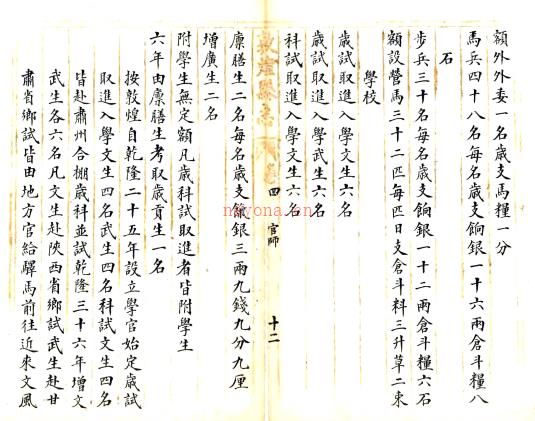 額外外委一名歲支馬糧一分
馬兵四十八名每名歲支餉銀一十六兩倉斗糧八
石
步兵三十名每名歲支餉銀一十二兩倉斗糧六石
額設營馬三十二匹每匹日支倉斗料三升草二束
學校
歲試取進入學文生六名
歲試取進入學武生六名
科試取進入學文生六名
敦煌縣志 卷四 官師 十二
廩膳生二名每名歲支廩銀三兩九錢九分九厘
增廣生二名
附學生無定額凡歲科試取進者皆附學生
六年由廩膳生考取歲貢生一名
按敦煌自乾隆二十五年設立學官始定歲試
取進入學文生四名武生四名科試文生四名
皆赴肅州合棚歲科並試乾隆三十六年增文
武生各六名凡文生赴陝西省鄉試武生赴甘
肅省鄉試皆由地方官給驛馬前往近來文風
nayona.cn